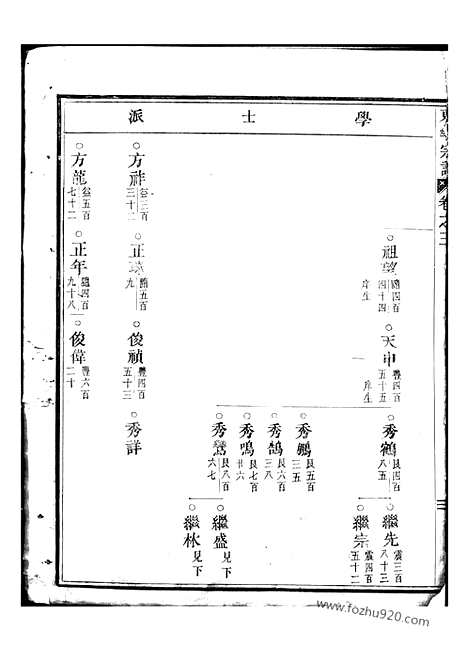 學士派
祖望 隨四百四十四 庠生
天申 豊四百五十五 庠生
秀鶴 艮四百八五
繼先 震三百八十三
繼宗 震四百五十二
秀鵬 艮五百三五
秀鵠 艮六百三八
秀鳴 艮七百廿六
秀鸞 艮八百六七
繼盛 見下
繼林 見下
方祥 三百三十二
正 五百九
俊禎 豊四百五十三
秀詳
方龍 五百七十二
正年 隨四百九十八
俊偉 豊六百二十
宗譜 卷之三
www.fozhu920.com